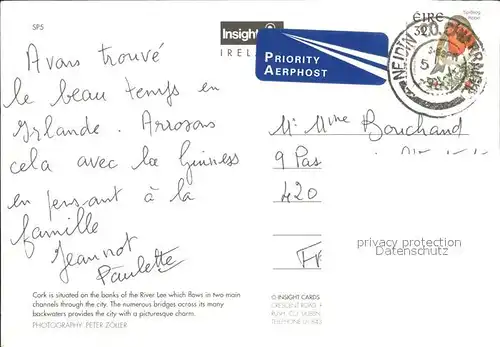 SP5
Insight
IREL
PRIORITY
AERPHOST
ÉIRE
32
Avons trouvé
le beau temps en
Irlande. Arrosons
cela avec la Guiness
en pensant à la
famille
Jeannot
Paulette
M. Mme Bouchand
9 Pas
420
privacy protection
Veryimportantlot.com
Cork is situated on the banks of the River Lee which flows in two main
channels through the city. The numerous bridges across its many
backwaters provides the city with a picturesque charm.
PHOTOGRAPHY: PETER ZÖLLER
© INSIGHT CARDS
CRESCENT ROAD
RUSH, CO. DUBLIN
TELEPHONE 01-843